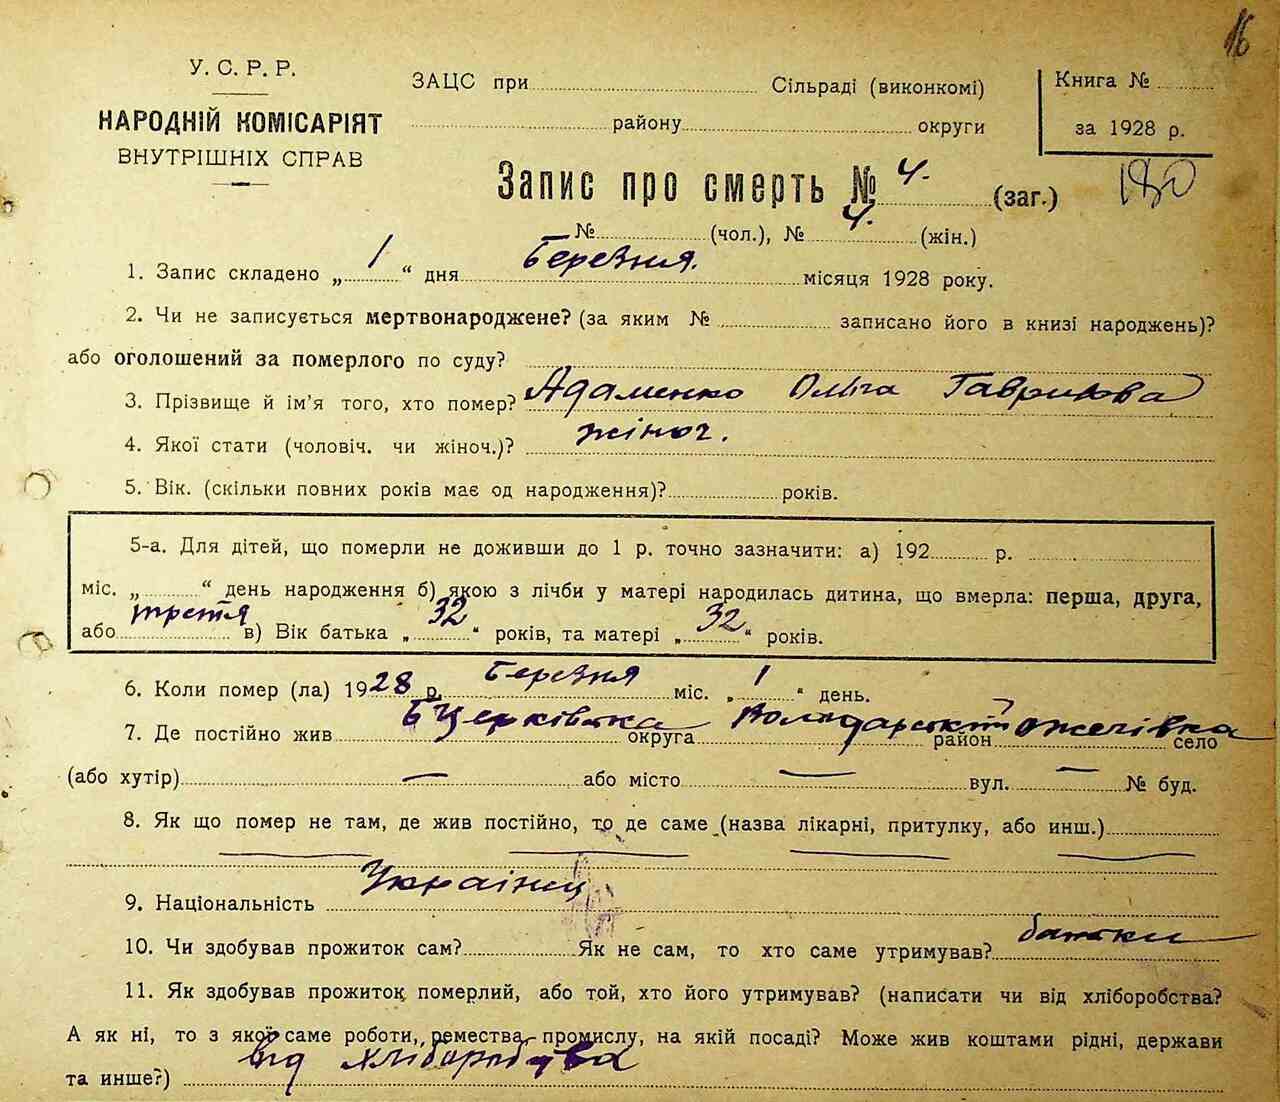 16
У. С. Р. Р.
НАРОДНІЙ КОМІСАРІЯТ
ВНУТРІШНІХ СПРАВ
ЗАЦС при Сільраді (виконкомі)
району округи
Книга №
за 1928 р.
Запис про смерть № 4. (заг.)
180
№ (чол.), № 4. (жін.)
1. Запис складено „ 1 “ дня Березня. місяця 1928 року.
2. Чи не записується мертвонароджене? (за яким № записано його в книзі народжень)?
або оголошений за померлого по суду?
3. Прізвище й ім'я того, хто помер? Адаменко Ольга Гаврилова
4. Якої стати (чоловіч. чи жіноч.)? жіноч.
5. Вік. (скільки повних років має од народження)? років.
5-а. Для дітей, що померли не доживши до 1 р. точно зазначити: а) 192 р.
міс. „ “ день народження б) якою з лічби у матері народилась дитина, що вмерла: перша, друга,
або третя в) Вік батька „ 32 “ років, та матері „ 32 “ років.
6. Коли помер (ла) 1928 р. Березня міс. „ 1 “ день.
7. Де постійно жив БЦерківська округа Володарський район Ожегівка село
(або хутір) — або місто — вул. — № буд.
8. Як що помер не там, де жив постійно, то де саме (назва лікарні, притулку, або инш.)
9. Національність Українц
10. Чи здобував прожиток сам? Як не сам, то хто саме утримував? батьки
11. Як здобував прожиток померлий, або той, хто його утримував? (написати чи від хліборобства?
А як ні, то з якої саме роботи, ремества, промислу, на якій посаді? Може жив коштами рідні, держави
та инше?) від хліборобства